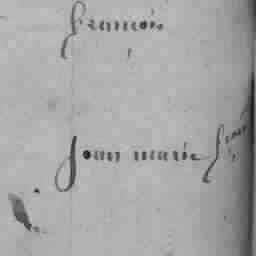 francois
Jean marie